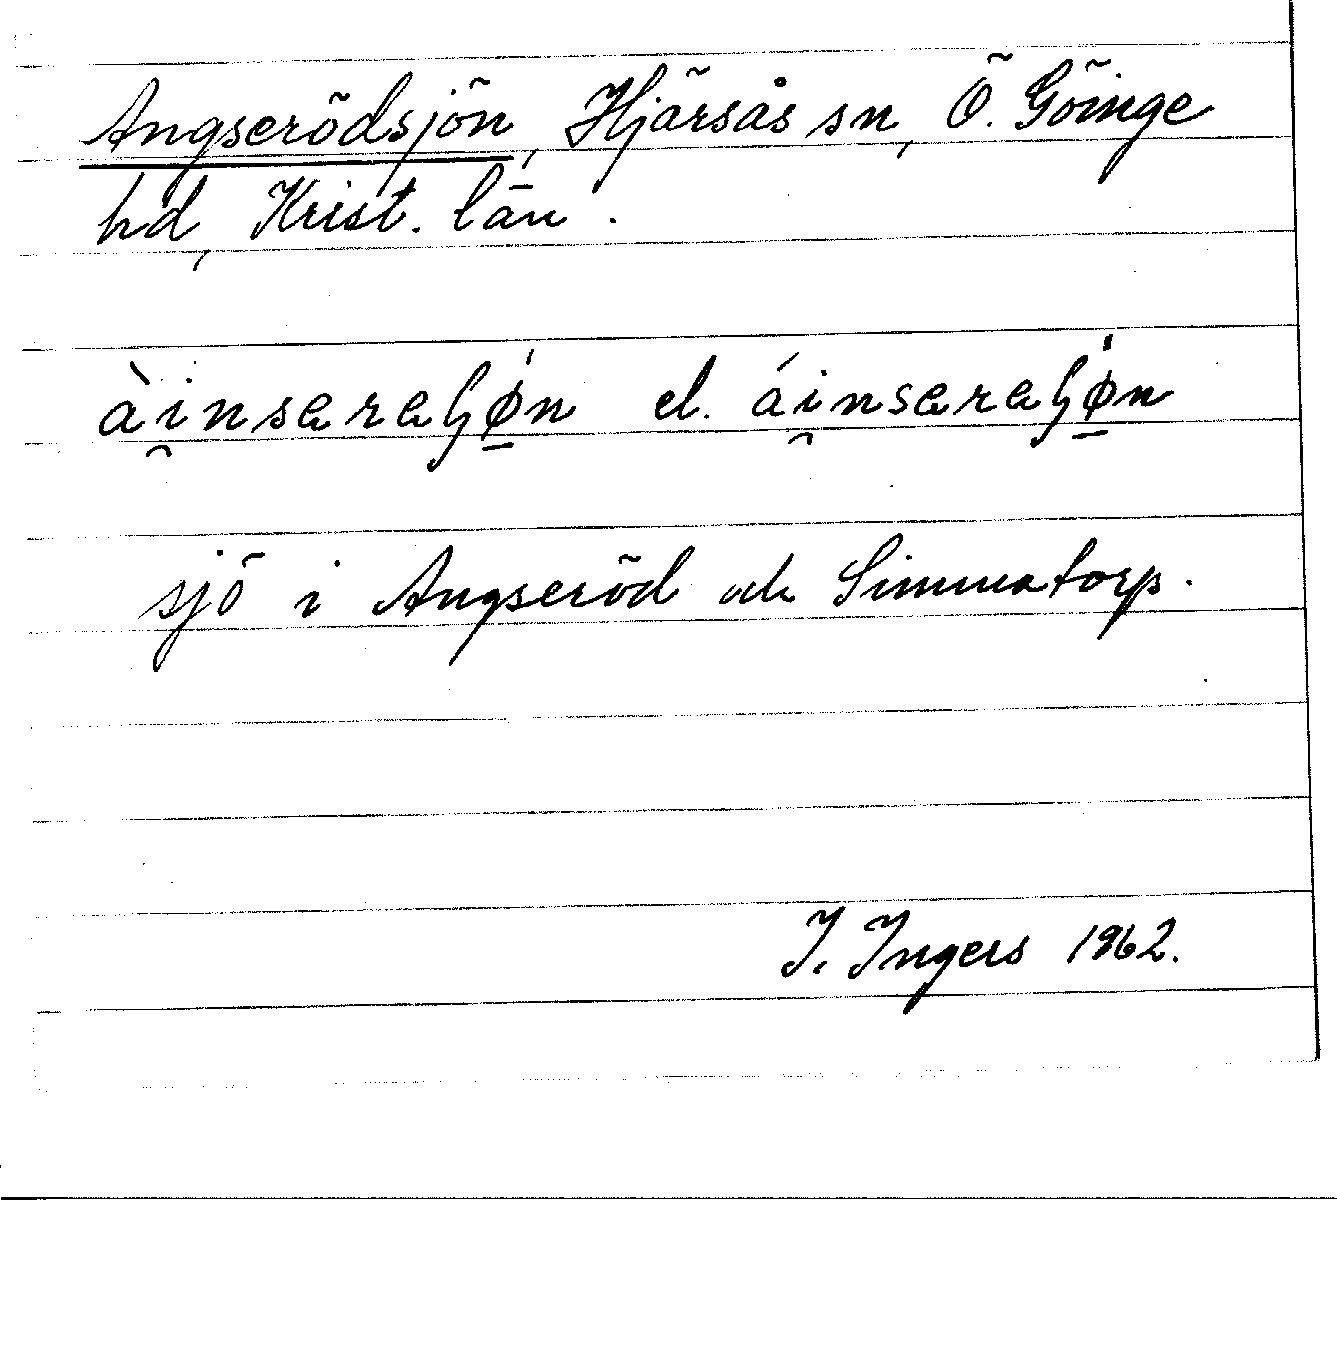 Angserödsjön, Hjärsås sn, Ö. Göinge
hd, Krist. län.
ài̯nsaraɧǿ̱n el. ái̯nsaraɧǿ̱n
sjö i Angseröd och Simmatorp.
I. Ingers 1962.